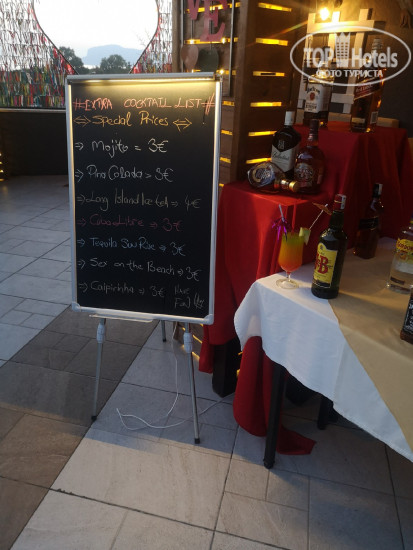 #EXTRA COCKTAIL LIST#
Special Prices
Mojito = 3€
Pina Colada = 3€
Long Island Ice tea = 4€
Cuba Libre = 3€
Tequila Sun Rise = 3€
Sex on the Beach = 3€
Caipirinha = 3€
Have
Fun!
TOP Hotels
ФОТО ТУРИСТА
J&B